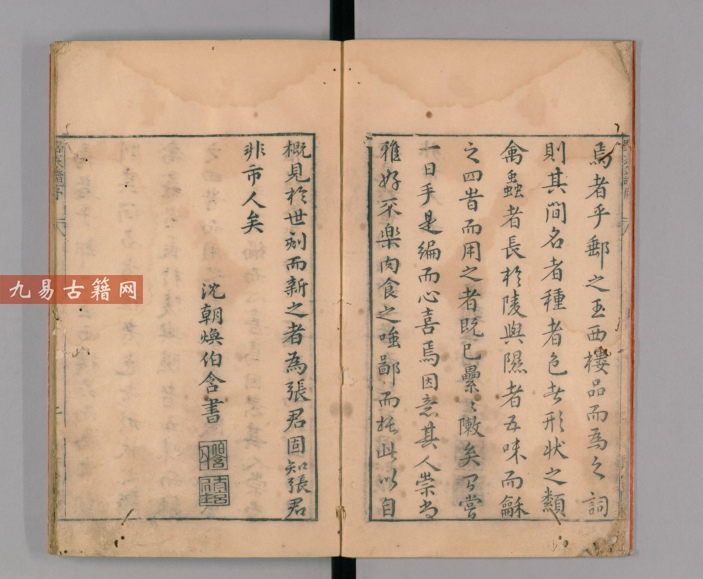 焉者乎郵之王西樓品而為之詞
則其間名者種者色者形狀之類
禽蟲者長於陵與隰者五味而龢
之四昔而用之者既已纍〻臚矣乃嘗
一日手是編而心喜焉因意其人崇尚
雅好不樂肉食之嗤鄙而托此以自
概見於世刻而新之者為張君固知張君
非市人矣
沈朝煥伯含書
九易古籍网